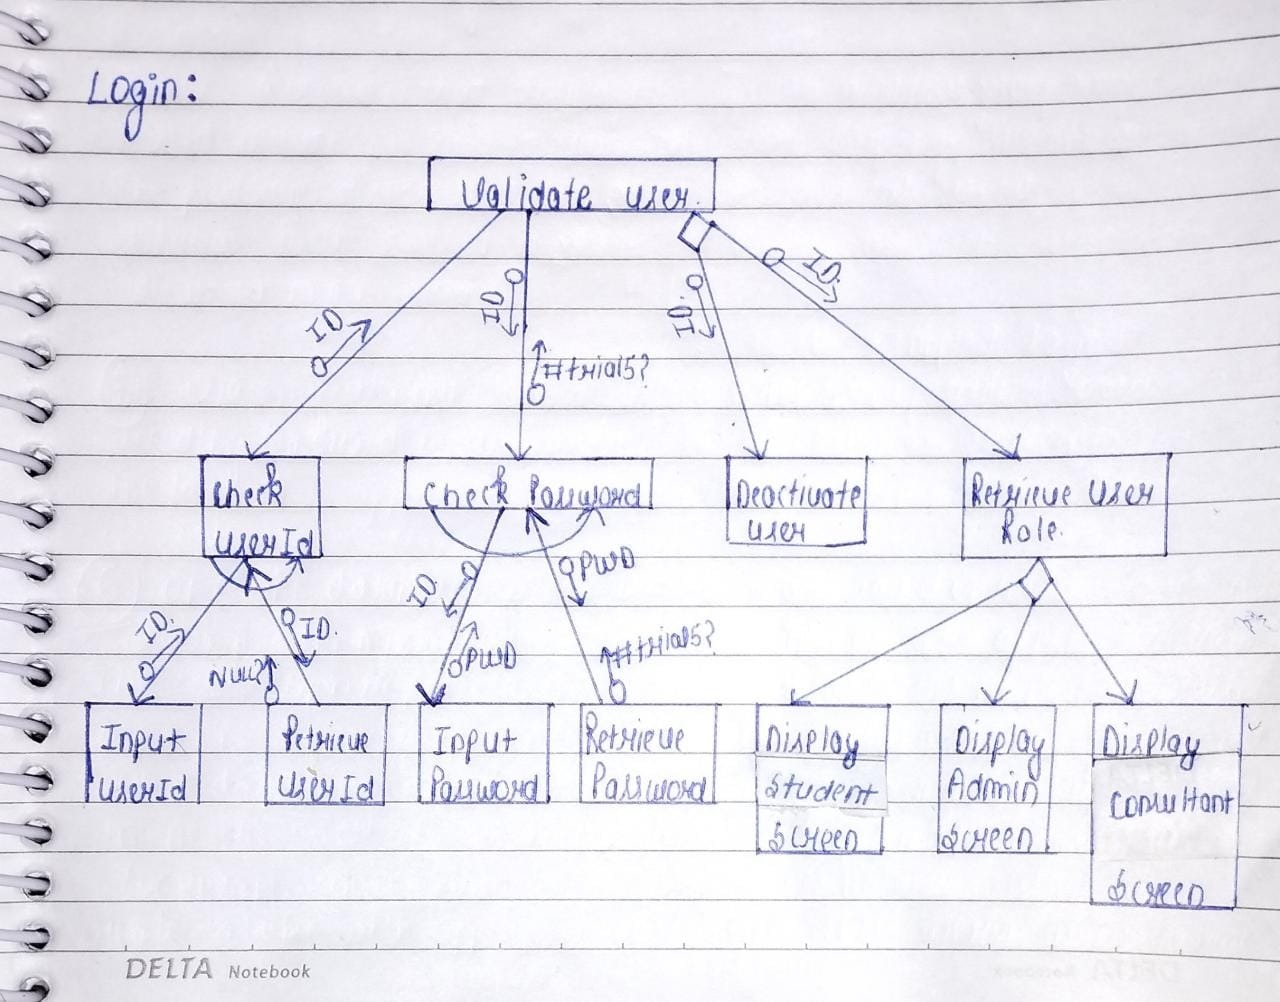 Login:
Validate user.
ID
ID
ID.
ID.
#trials?
Check
userId
Check Password
Deactivate
user
Retrieve user
Role.
ID.
ID.
Null?
ID
PWD
PWD
#trials?
Input
userId
Retrieve
userId
Input
Password
Retrieve
Password
Display
Student
Screen
Display
Admin
Screen
Display
Consultant
Screen
DELTA Notebook